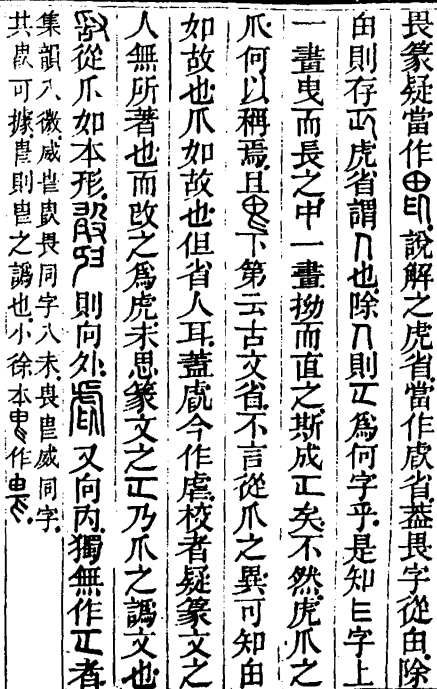 畏篆疑當作 說解之虎省當作虐省蓋畏字從甶除
甶則存 虎省謂 也除 則 爲何字乎是知 字上
一畫曳而長之中一畫拗而直之斯成 矣不然虎爪之
爪何以稱焉且 下第云古文省不言從爪之異可知甶
如故也爪如故也但省人耳蓋虐今作虐校者疑篆文之
人無所著也而改之爲虎未思篆文之 乃爪之譌文也
從爪如本形 則向外 又向內獨無作 者
集韻入微威 畏同字八未畏 威同字
其 可據 則 之譌也小徐本 作